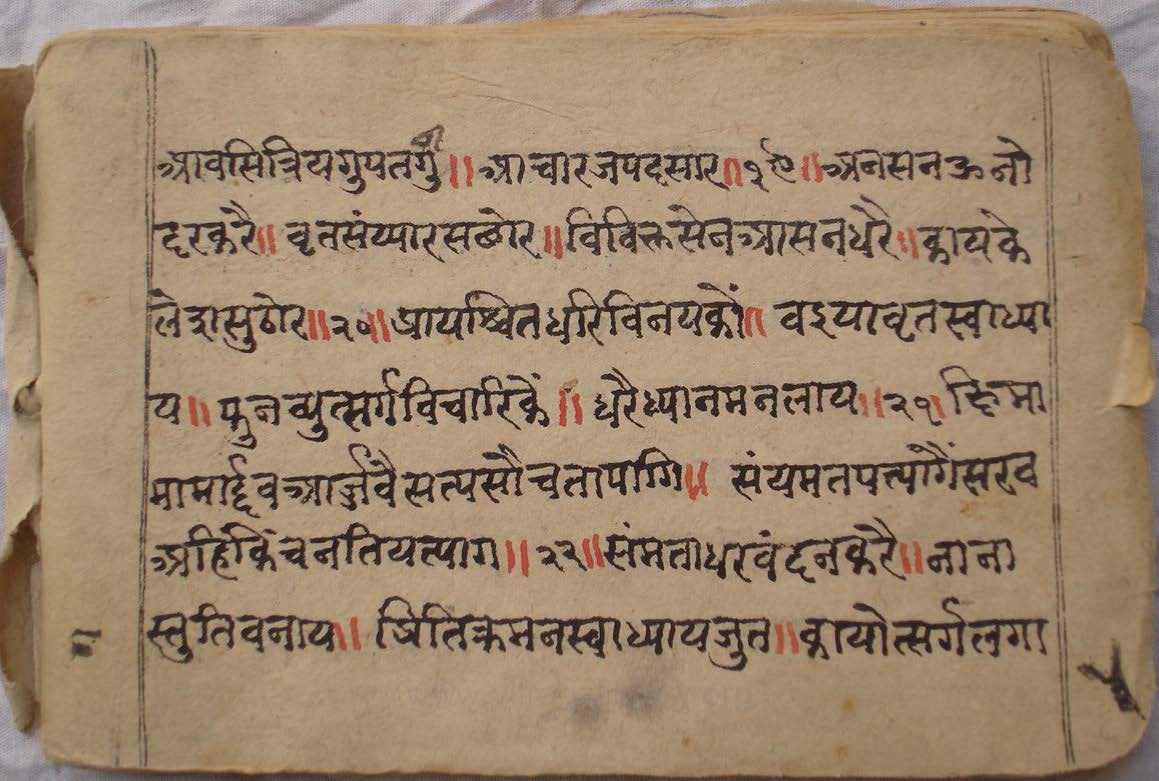 आवसित्रियगुपतगुं॥ आचारजपदसार॥१९॥अनसनऊनो
दरकरै॥ वृतसंख्यारसछोर॥विविक्तसेनआसनधरै॥कायक
लेशसुठोर॥२०॥प्रायश्चितधरिविनयकौं॥ वइयावृतस्वाध्या
य॥ फुनव्युत्सर्गविचारिकैं॥ धरैध्यानमनलाय॥२१॥छिमा
मामार्द्दवआर्ज्जवैसत्यसौचतापागि॥ संयमतपत्यागैंसरव
अहिकिंचनतियत्याग॥२२॥संमताधरवंदनकरै॥नाना
स्तुतिवनाय॥ प्रितिक्रमनस्वाध्यायजुत॥कायोत्सर्गलगा